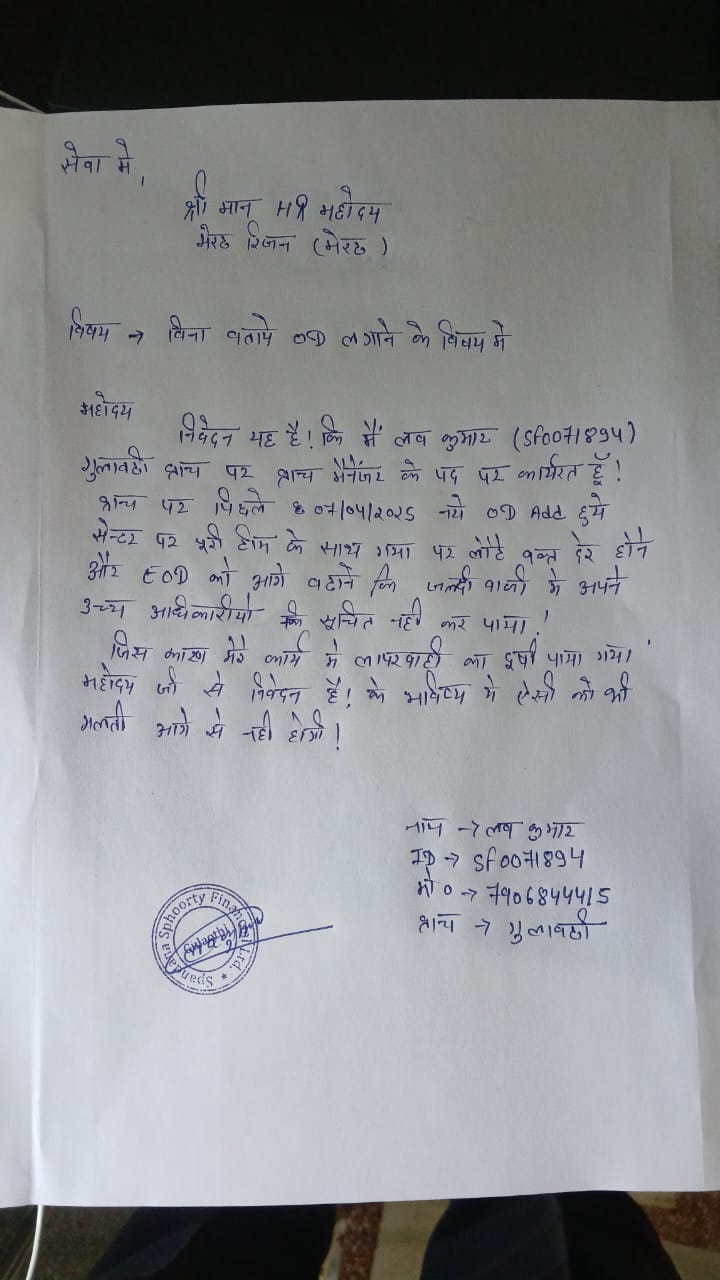 सेवा मे,
श्री मान HR महोदय
मेरठ रिजन (मेरठ)
विषय → विना वताये OD लगाने के विषय मे
महोदय
निवेदन यह है! कि मैं लव कुमार (Sf0071894)
गुलावठी ब्रांच पर ब्रांच मैनेंजर के पद पर कार्यरत हूँ!
ब्रान्च पर पिछले 07/04/2025 नये OD Add हुये
सेन्टर पर पूरी टीम के साथ गया पर लौटे वक्त देर होने
और EOD को आगे वढाने कि जल्दी वाजी मे अपने
उच्च अधिकारीयो कि सूचित नही कर पाया!
जिस कारण मेरे कार्य मे लापरवाही का दूषी पाया गया।
महोदय जी से निवेदन है! के भविष्य मे ऐसी को भी
गलती आगे से नही होगी!
नाम → लव कुमार
ID → Sf0071894
मो० → 7906844415
ब्रांच → गुलावठी
Spandana Sphoorty Financial Ltd.